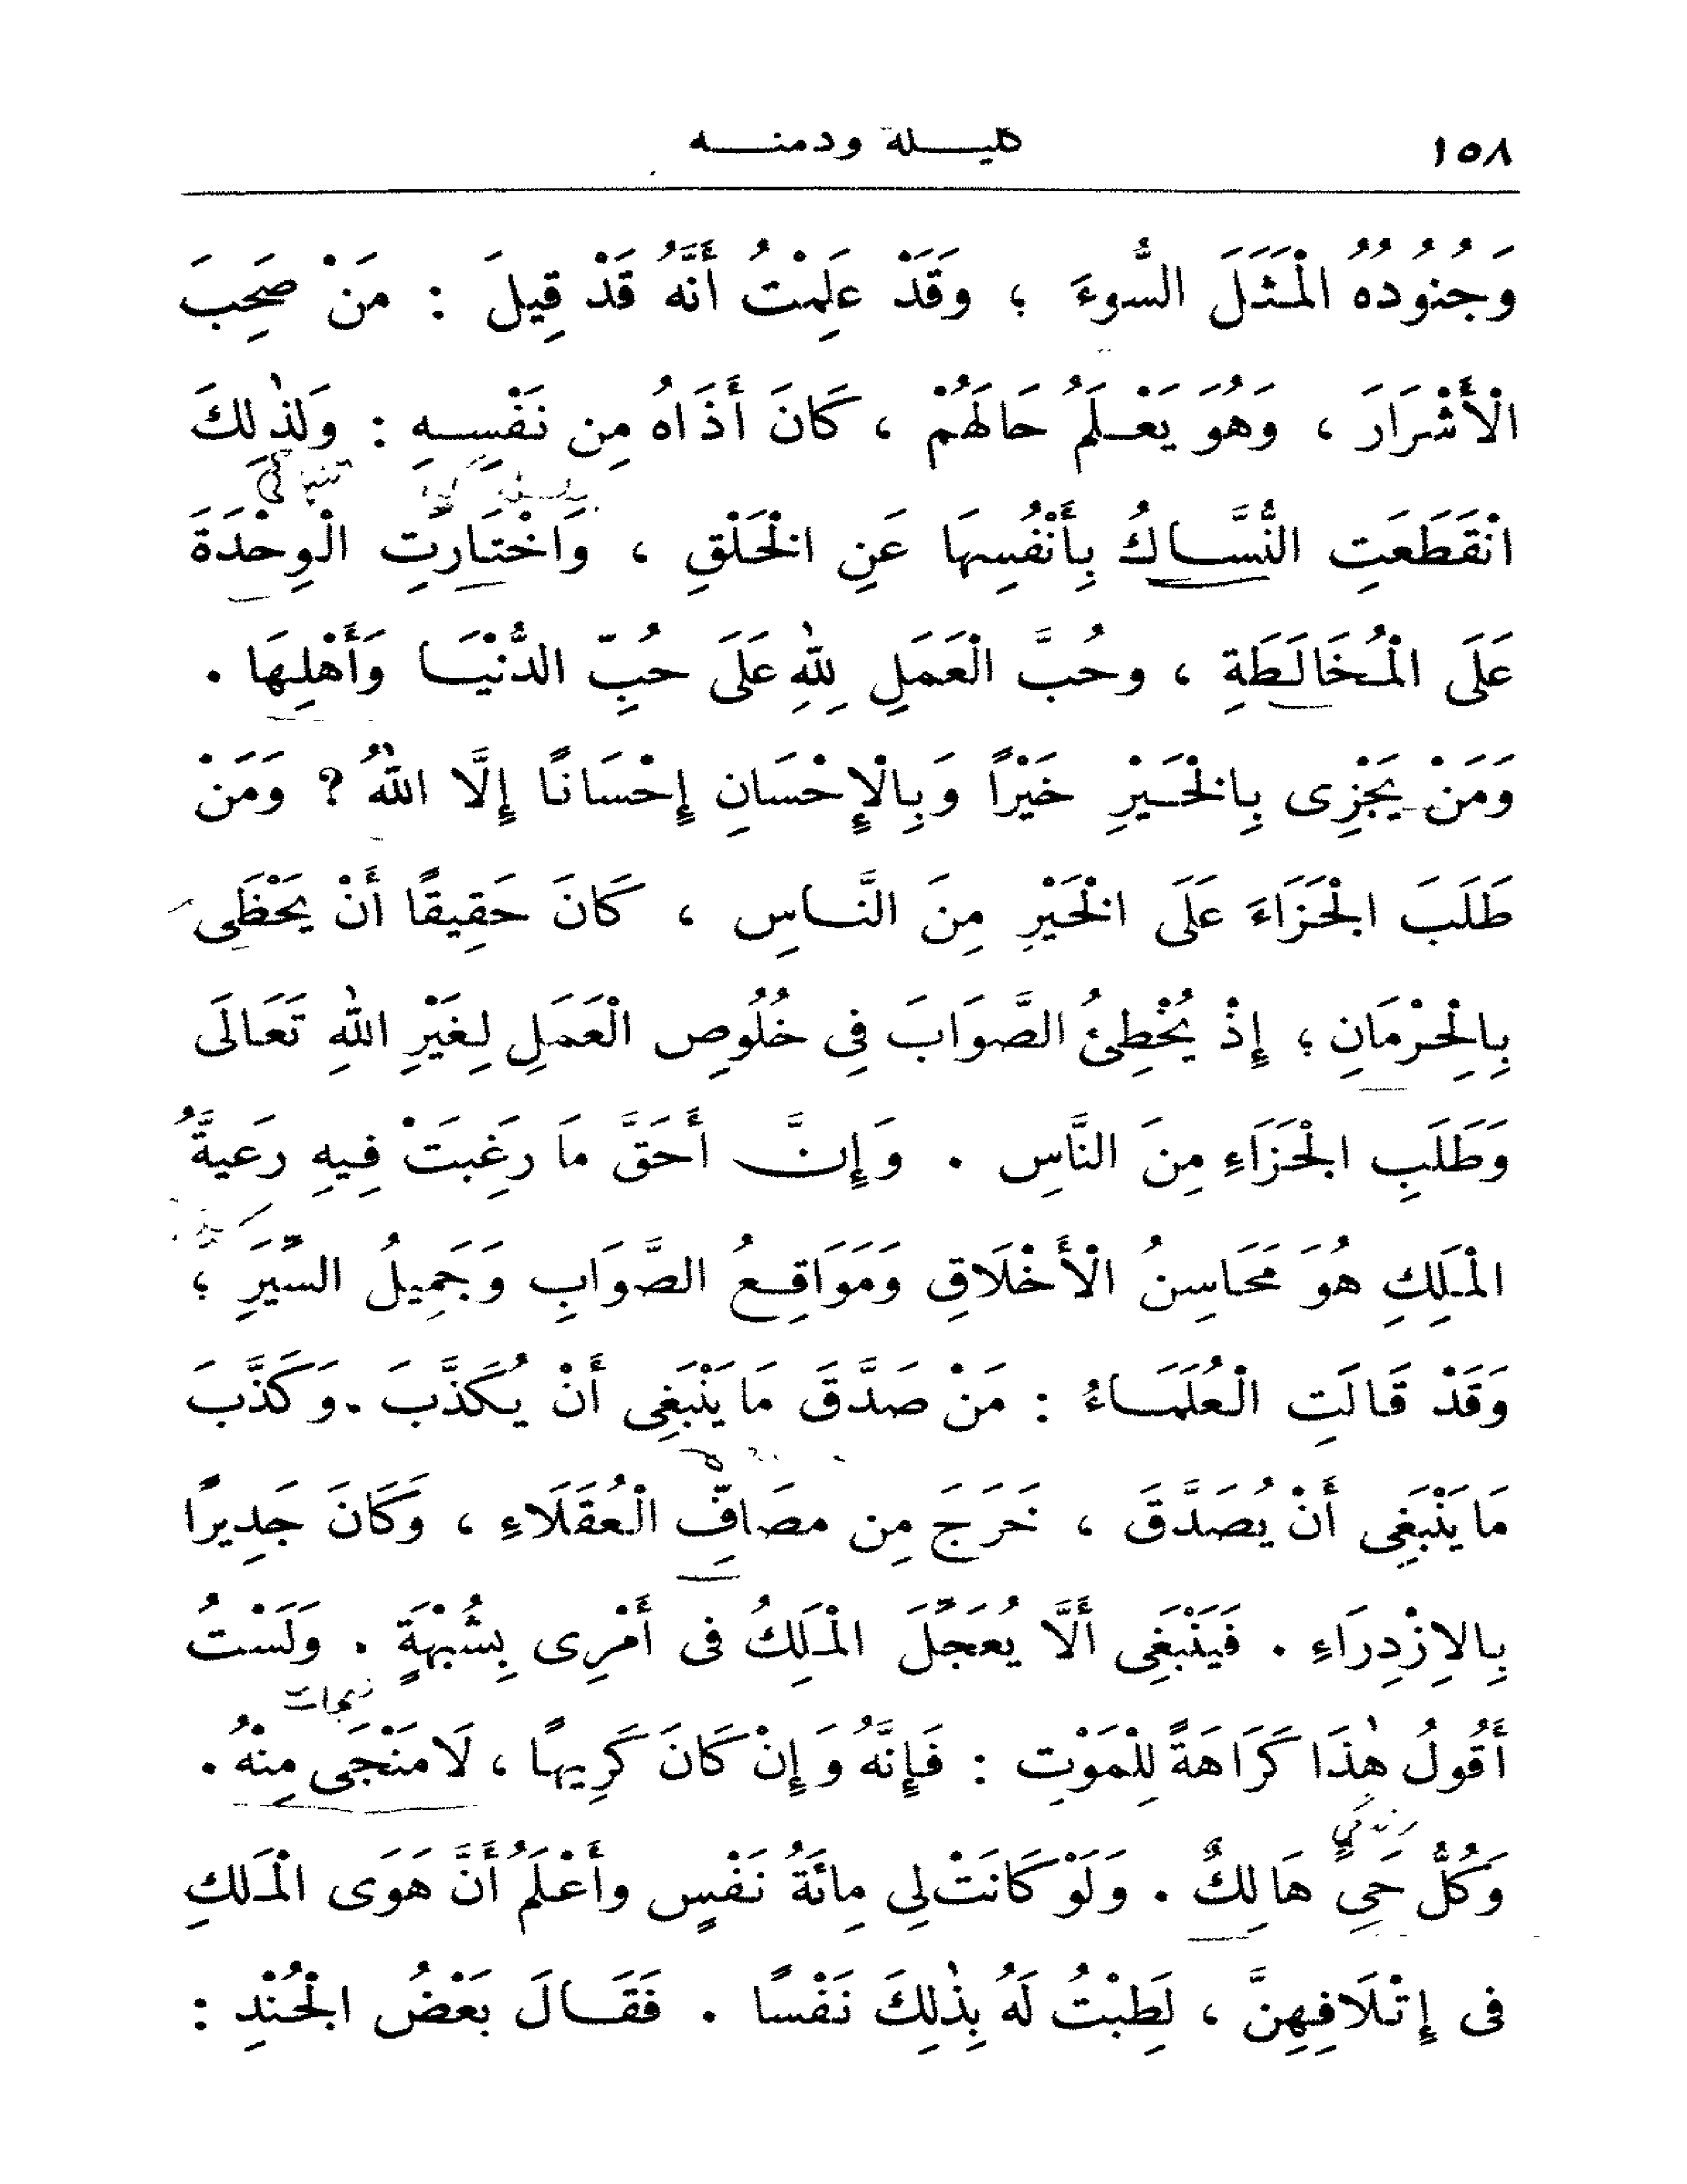 ١٥٨ كليلة ودمنه
وَجُنُودُهُ الْمَثَلَ السُّوءَ ؛ وَقَدْ عَلِمْتُ أَنَّهُ قَدْ قِيلَ : مَنْ صَحِبَ
الْأَشْرَارَ ، وَهُوَ يَعْلَمُ حَالَهُمْ ، كَانَ أَذَاهُ مِن نَفْسِهِ : وَلِذٰلِكَ
انْقَطَعَتِ النُّسَّاكُ بِأَنْفُسِهَا عَنِ الْخَلْقِ ، وَاخْتَارَتِ الْوِحْدَةَ
عَلَى الْمُخَالَطَةِ ، وحُبَّ الْعَمَلِ لِلّٰهِ عَلَى حُبِّ الدُّنْيَا وَأَهْلِهَا .
وَمَنْ يَجْزِى بِالْخَيْرِ خَيْرًا وَبِالْإِحْسَانِ إِحْسَانًا إِلَّا اللّٰهُ ؟ وَمَنْ
طَلَبَ الْجَزَاءَ عَلَى الْخَيْرِ مِنَ النَّاسِ ، كَانَ حَقِيقًا أَنْ يَحْظَى
بِالْحِرْمَانِ ؛ إِذْ يُخْطِئُ الصَّوَابَ فِى خُلُوصِ الْعَمَلِ لِغَيْرِ اللّٰهِ تَعَالَى
وَطَلَبِ الْجَزَاءِ مِنَ النَّاسِ . وَإِنَّ أَحَقَّ مَا رَغِبَتْ فِيهِ رَعِيةُّ
الْمَلِكِ هُوَ مَحَاسِنُ الْأَخْلَاقِ وَمَوَاقِعُ الصَّوَابِ وَجَمِيلُ السِّيَرِ ؛
وَقَدْ قَالَتِ الْعُلَمَاءُ : مَنْ صَدَّقَ مَا يَنْبَغِى أَنْ يُكَذَّبَ . وَكَذَّبَ
مَا يَنْبَغِى أَنْ يُصَدَّقَ ، خَرَجَ مِن مصَافِّ الْعُقَلَاءِ ، وَكَانَ جَدِيرًا
بِالاِزْدِرَاءِ . فَيَنْبَغِى أَلَّا يُعَجِّلَ الْمَلِكُ فى أَمْرِى بِشُبْهَةٍ . وَلَسْتُ
أَقُولُ هٰذَا كَرَاهَةً لِلْمَوْتِ : فَإِنَّهُ وَإِنْ كَانَ كَرِيهًا ، لَا مَنْجَى مِنْهُ .
وَكُلُّ حَىٍّ هَالِكٌ . وَلَوْ كَانَتْ لِى مِائَةُ نَفْسٍ وأَعْلَمُ أَنَّ هَوَى الْمَلِكِ
فى إِتْلَافِهِنَّ ، لَطِبْتُ لَهُ بِذٰلِكَ نَفْسًا . فَقَالَ بَعْضُ الْجُنْدِ :